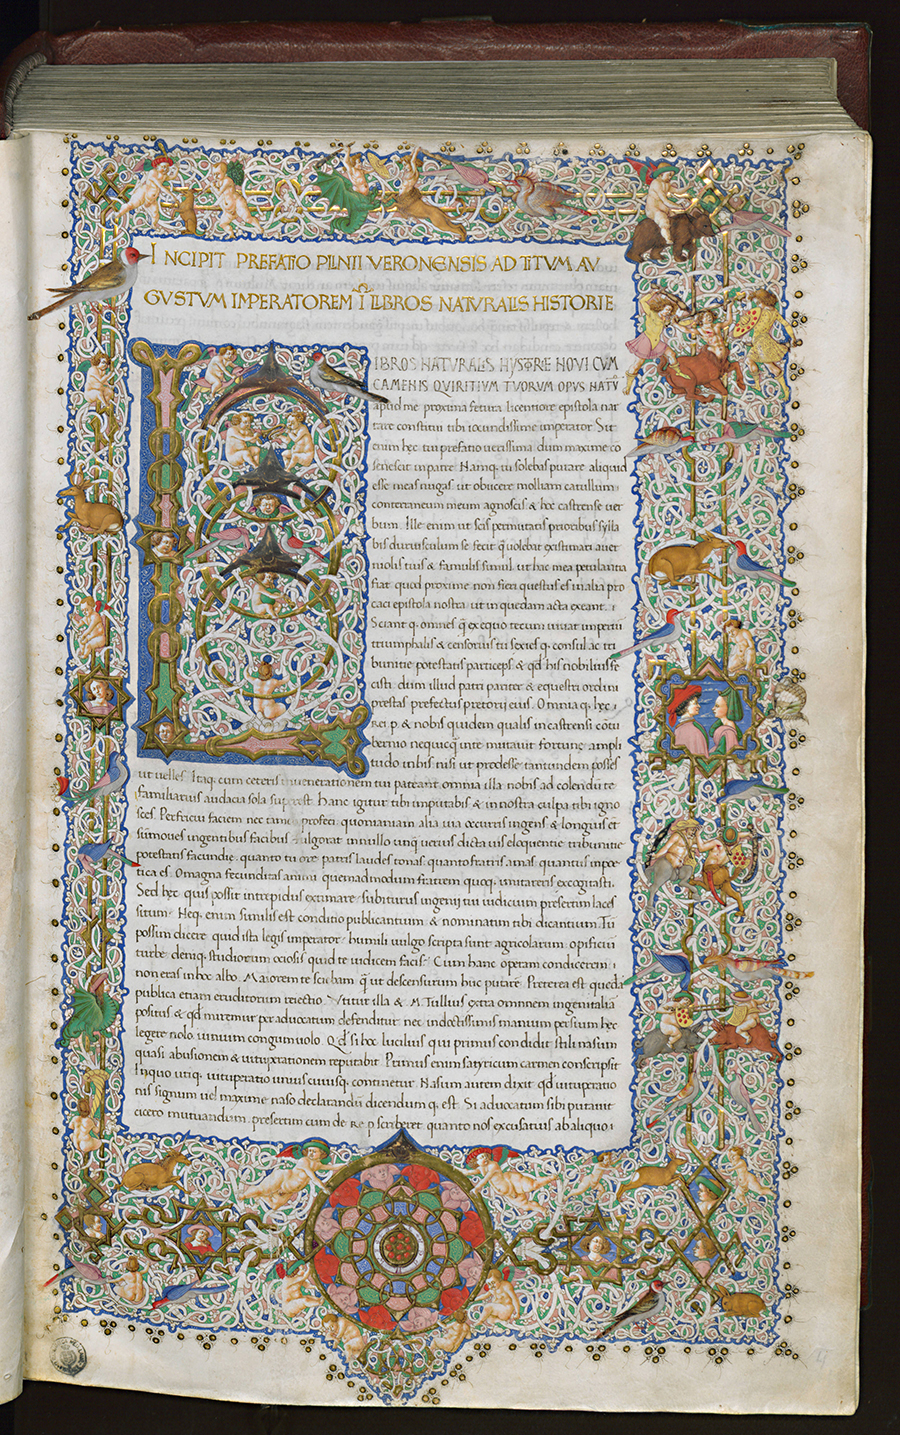 INCIPIT PREFATIO PILNII VERONENSIS AD TITUM AU
GUSTUM IMPERATOREM I LLBROS NATURALIS HISTORIE
LIBROS NATURALIS HYSTORIE NOVI CUM
CAMENIS QUIRITIUM TUORUM OPUS NATU
apud me proxima fetura licentiore epistola nar
rare constitui tibi iocundissime imperator. Sit
enim hęc tui prefatio verissima dum maximo co
senescit in patre. Namq. tu solebas putare aliquid
esse meas nugas ut obiicere molliam catullum
conterraneum meum agnoscis & hoc castrense ver
bum. Ille enim ut scis permutatis prioribus sylla
bis duriusculum se fecit q̃ volebat existimari a ver
niolis tuis & famulis simul ut hac mea petulantia
fiat quod proxime non fieri questus es in alia pro
caci epistola nostra ut in quedam acta exeant.
Sciant q. omnes q̃ ex equo tecum vivat imperiū
triumphalis & censorius tu sexies q. consul ac tri
bunitie potestatis particeps & qd his nobilius fe
cisti dum illud patri pariter & equestri ordini
prestas prefectus pretorii eius. Omnia q. hęc
Rei p. & nobis quidem qualis in castrensi cōtu
bernio nequicq̃ in te mutavit fortunę ampli
tudo in his nisi ut prodesse tantundem posses
ut velles. Itaq. cum ceteris in venerationem tui pateant omnia illa nobis ad colendū te
familiarius audacia sola superest. Hanc igitur tibi imputabis & in nostra culpa tibi igno
sces. Perfricui faciem nec tamē profeci quoniam alia via occurris ingens & longius et
sūmoves ingentibus facibus fulgorat in nullo unq̃ verius dicta vis eloquentie tribunitie
potestatis facundię. quanto tu ore patris laudes tonas. quanto fratris amas. quantus in poe
tica es. O magna fecunditas animi quemadmodum fratrem quoq. imitareris excogitasti.
Sed hęc quis possit intrepidus extimare subiturus ingenij tui iudicium presertim laces
situm. Neq. enim similis est conditio publicantium & nominatim tibi dicantium. Tū
possim dicere quid ista legis imperator. humili vulgo scripta sunt agricolarum opificū
turbę deniq. studiorum ociosis quid te iudicem facis. Cum hanc operam condicerem
non eras in hoc albo. Maiorem te sciebam q̃ ut descensurum huc putarē. Preterea est quedā
publica etiam eruditorum reiectio. Utitur illa & M. Tullius extra omnem ingenii aliā
positus & qd miremur per advocatum defenditur nec indoctissimis manium persium hęc
legere nolo. iunium congum volo. Qd si hoc lucilius qui primus condidit stili nasum
quasi abusionem & vituperationem reputabit. Primus enim satyricum carmen conscripsit
In quo utiq. vituperatio unius cuiusq. continetur. Nasum autem dixit qd vituperatio
nis signum vel maxime naso declarandū dicendum q. est. Si advocatum sibi putavit
cicero mutuandum. presertim cum de Re p. scriberet. quanto nos excusatius ab aliquo